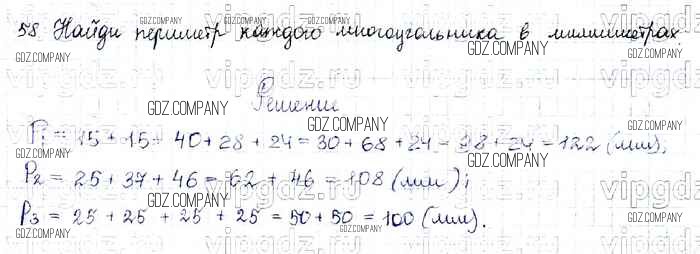 58 Найди периметр каждого многоугольника в миллиметрах.
Решение
P₁ = 15 + 15 + 40 + 28 + 24 = 30 + 68 + 24 = 98 + 24 = 122 (мм);
P₂ = 25 + 37 + 46 = 62 + 46 = 108 (мм);
P₃ = 25 + 25 + 25 + 25 = 50 + 50 = 100 (мм).
GDZ.COMPANY
vipgdz.ru